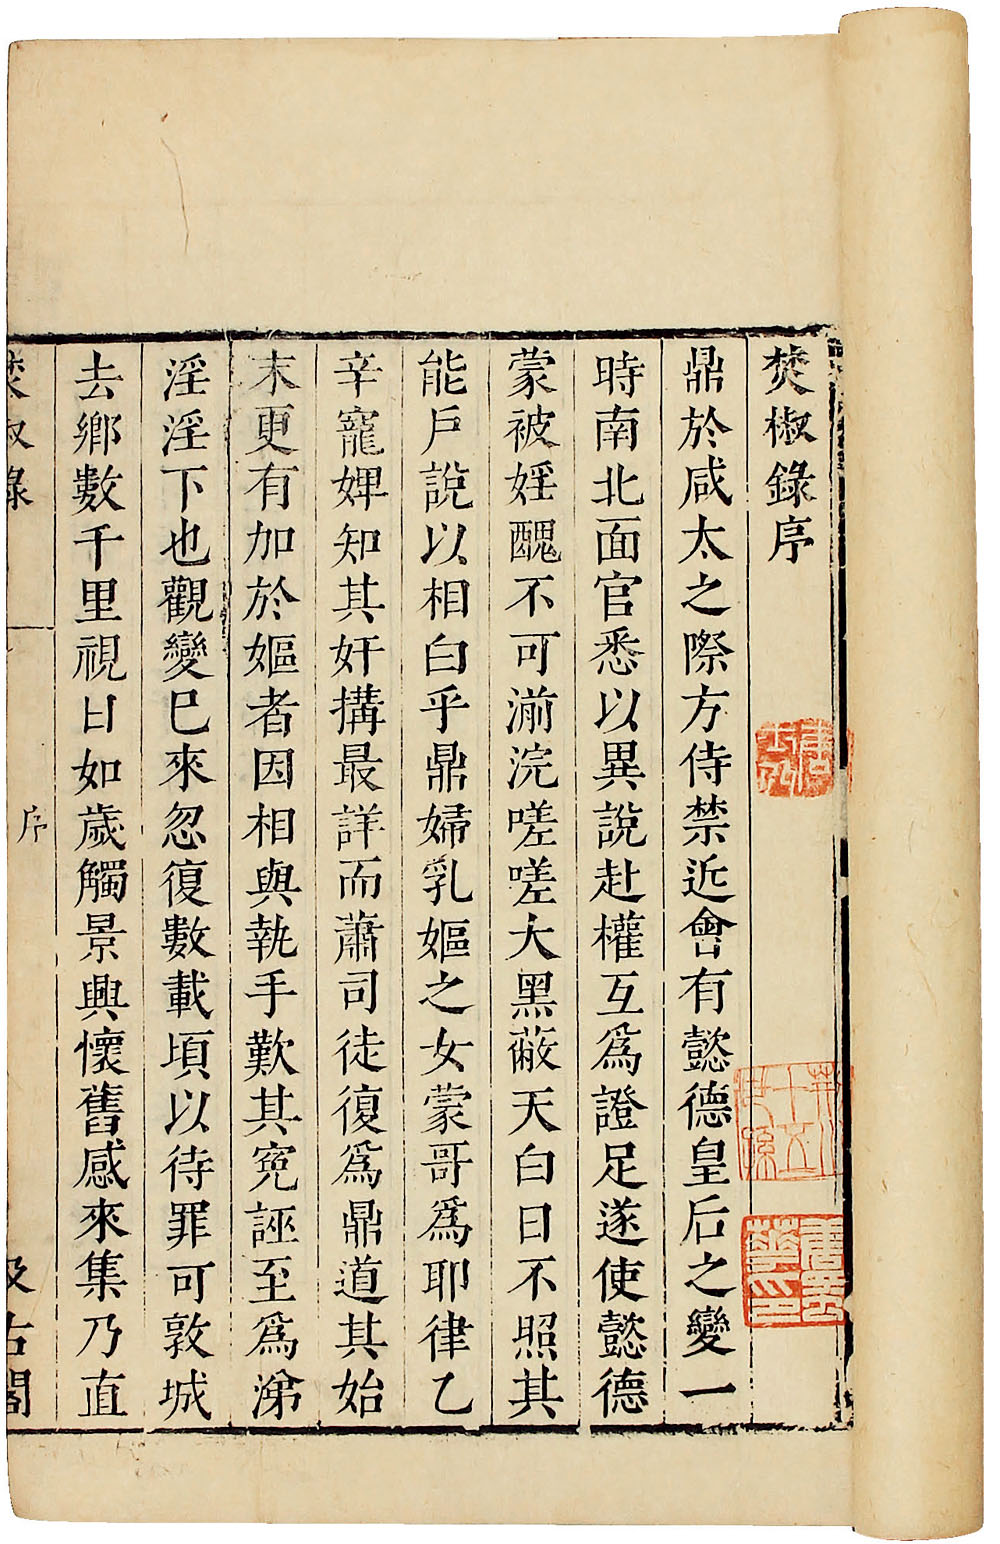 焚椒錄序
鼎於咸太之際方侍禁近會有懿德皇后之變一
時南北面官悉以異說赴權互爲證足遂使懿德
蒙被婬醜不可湔浣嗟嗟大黑蔽天白日不照其
能戶說以相白乎鼎婦乳嫗之女蒙哥爲耶律乙
辛寵婢知其奸搆最詳而蕭司徒復爲鼎道其始
末更有加於嫗者因相與執手歎其冤誣至爲涕
淫淫下也觀變巳來忽復數載頃以待罪可敦城
去鄉數千里視日如歲觸景興懷舊感來集乃直
焚椒錄
序
汲古閣